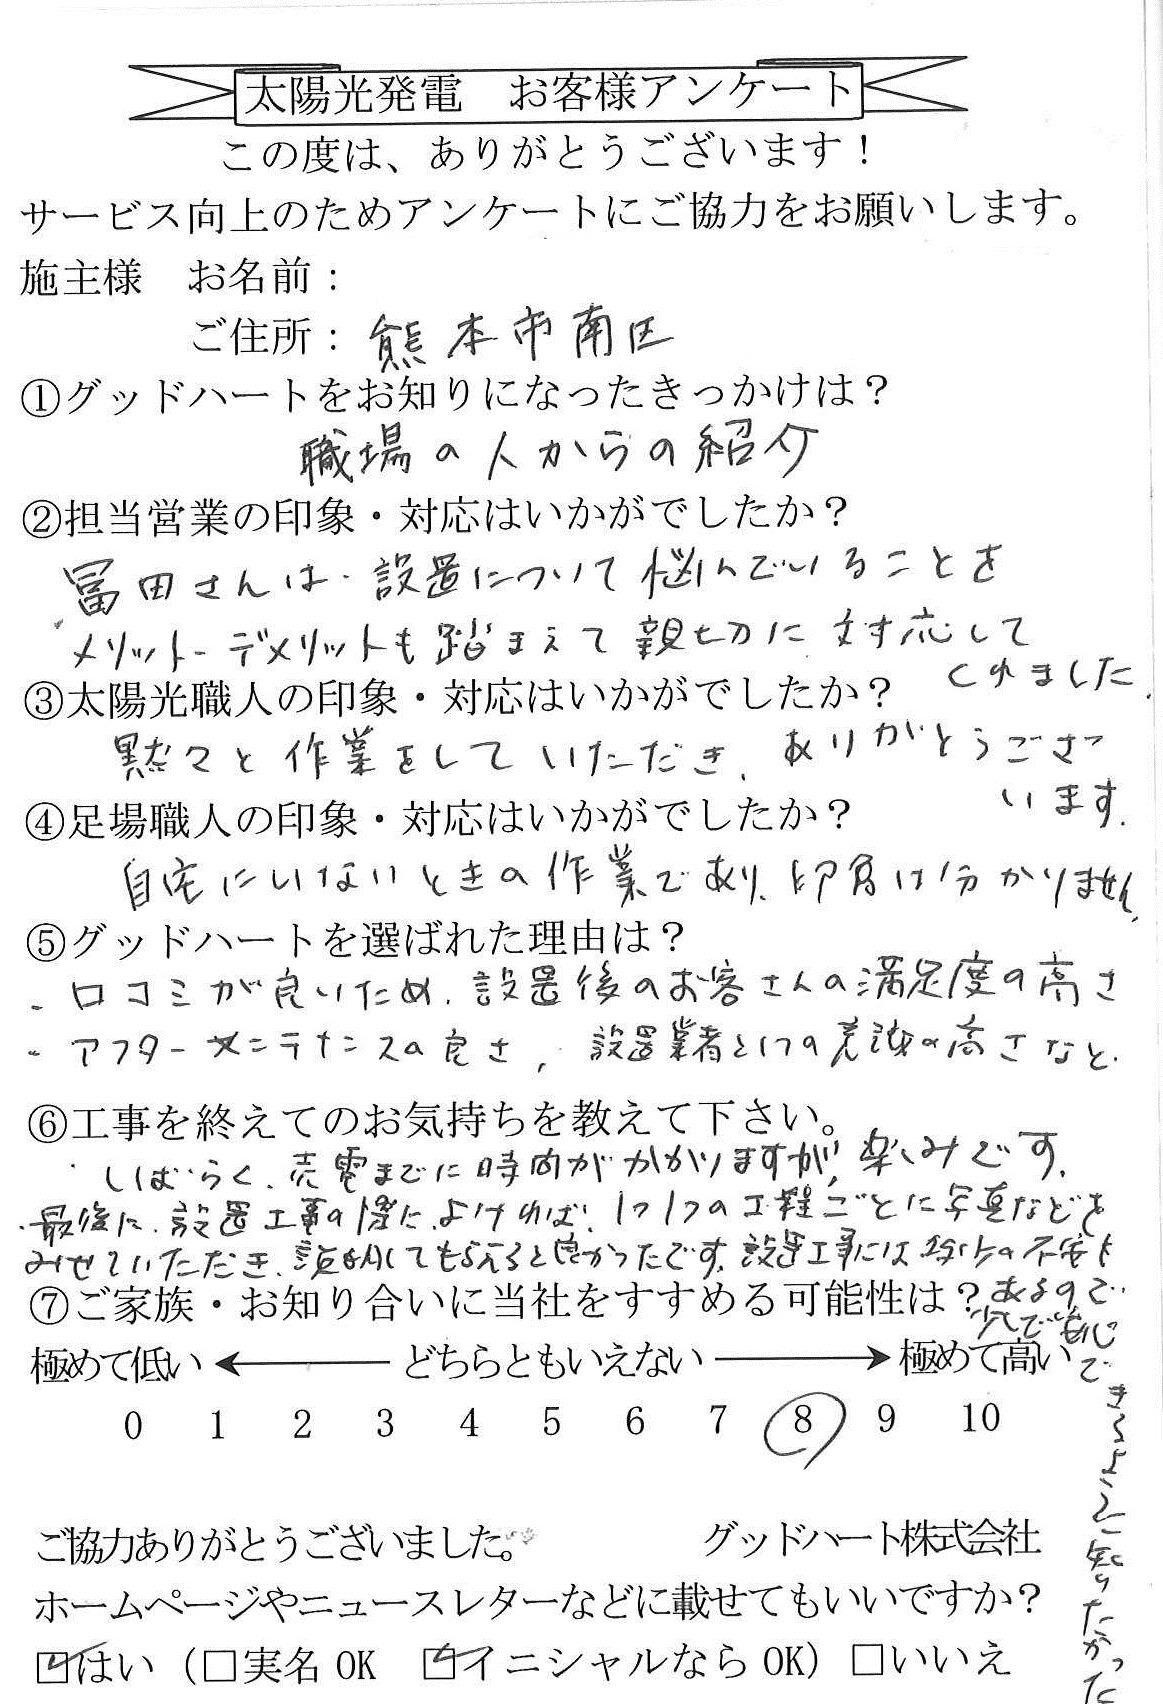 太陽光発電　お客様アンケート
この度は、ありがとうございます！
サービス向上のためアンケートにご協力をお願いします。
施主様　お名前：
ご住所：熊本市南区
①グッドハートをお知りになったきっかけは？
職場の人からの紹介
②担当営業の印象・対応はいかがでしたか？
冨田さんは、設置について悩んでいることを
メリット・デメリットも踏まえて親切に対応して
くれました。
③太陽光職人の印象・対応はいかがでしたか？
黙々と作業をしていただき、ありがとうござ
います。
④足場職人の印象・対応はいかがでしたか？
自宅にいないときの作業であり、印象は分かりません。
⑤グッドハートを選ばれた理由は？
・口コミが良いため、設置後のお客さんの満足度の高さ
・アフターメンテナンスの良さ、設置業者としての意識の高さなど。
⑥工事を終えてのお気持ちを教えて下さい。
しばらく、売電までに時間がかかりますが、楽しみです。
最後に、設置工事の際に、よければ、1つ1つの工程ごとに写真などを
みせていただき、説明してもらえると良かったです。設置工事には多少の不安も
⑦ご家族・お知り合いに当社をすすめる可能性は？
あるので、
少しでも安心
できるように知りたかった
極めて低い ← どちらともいえない → 極めて高い
0 1 2 3 4 5 6 7 8 9 10
ご協力ありがとうございました。　グッドハート株式会社
ホームページやニュースレターなどに載せてもいいですか？
☑はい（□実名 OK　☑イニシャルなら OK）□いいえ